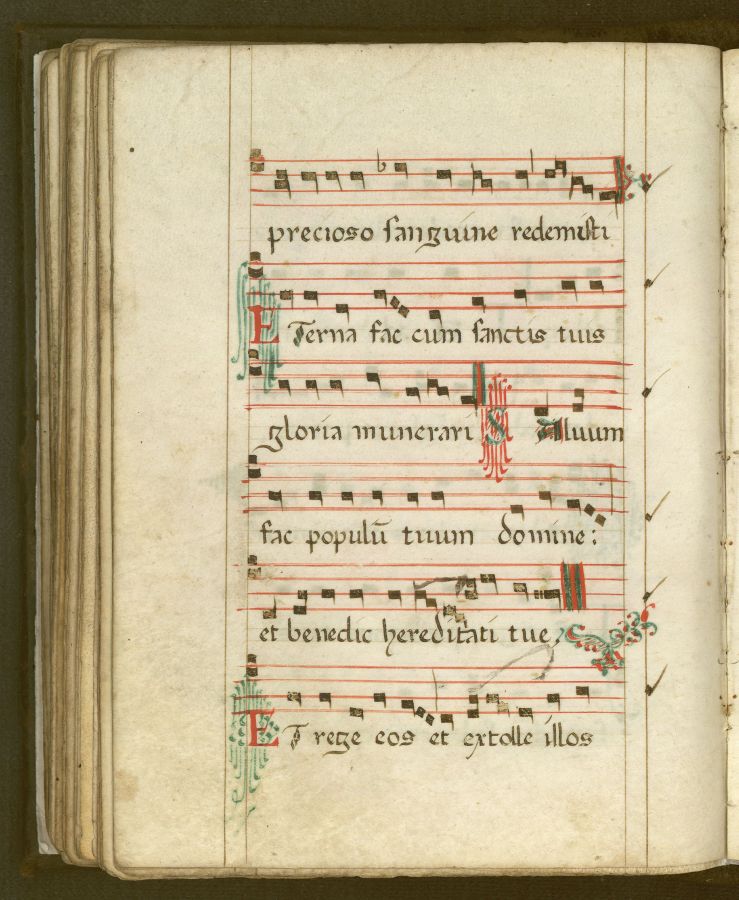 precioso sanguine redemisti
ETerna fac cum sanctis tuis
gloria munerari SAlvum
fac populū tuum domine:
et benedic hereditati tue,
ET rege eos et extolle illos